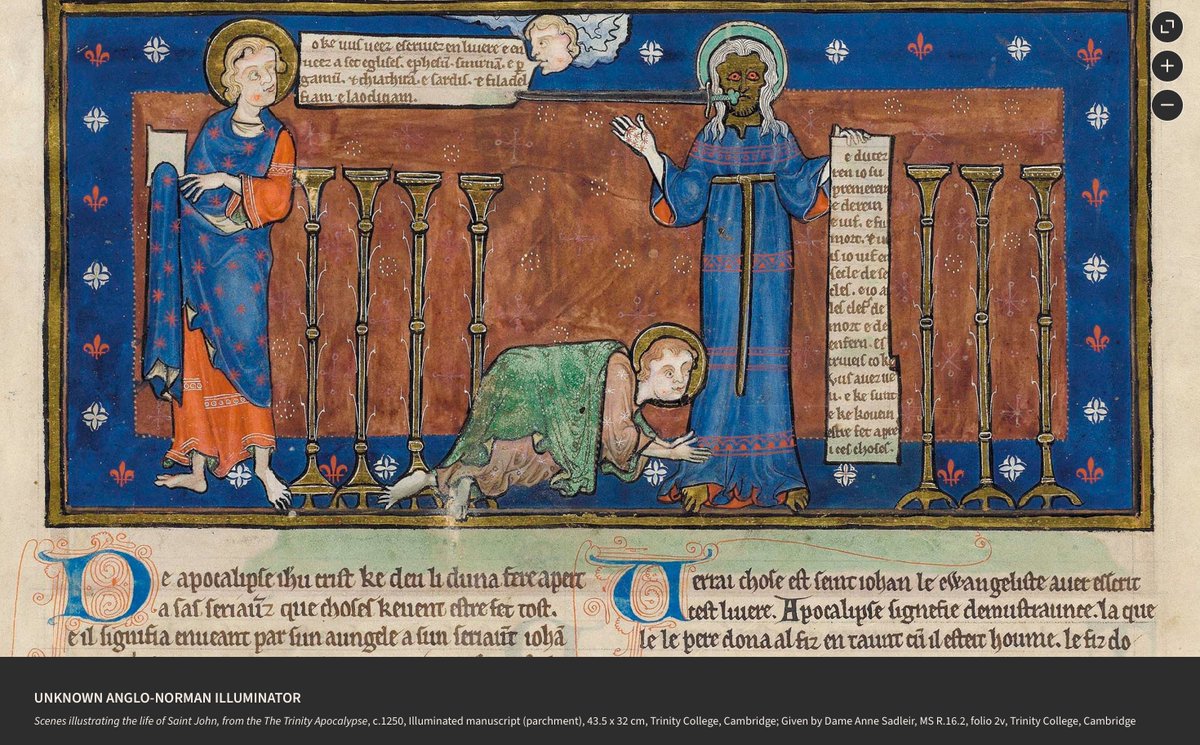 o ke uus ueez escriuez en liuere e en
gamū. & thiathirā. e sardis. e filadel
fiam. e laodiciam.
e dutez
ren io su
e derein
e uif. e fu
mort. & ui
secle de se
cles. e io a
mort e de
enfern. es
u. e ke sunt
e ke kouein
estre fet apre
ces choses.
De apocalipse ihu crist ke deu li duna fere apert
a sas seriauz que choses keuent estre fet tost.
e il signifia enueant par sun aungele a sun seriaūt iohā
Uerrai chose est seint iohan le ewangeliste auer escrit
cest liuere. Apocalipse signefie demustraunce. la que
le le pere dona al fiz en taunt cū il esteit houme. le fiz do
UNKNOWN ANGLO-NORMAN ILLUMINATOR
Scenes illustrating the life of Saint John, from the The Trinity Apocalypse, c.1250, Illuminated manuscript (parchment), 43.5 x 32 cm, Trinity College, Cambridge; Given by Dame Anne Sadleir, MS R.16.2, folio 2v, Trinity College, Cambridge